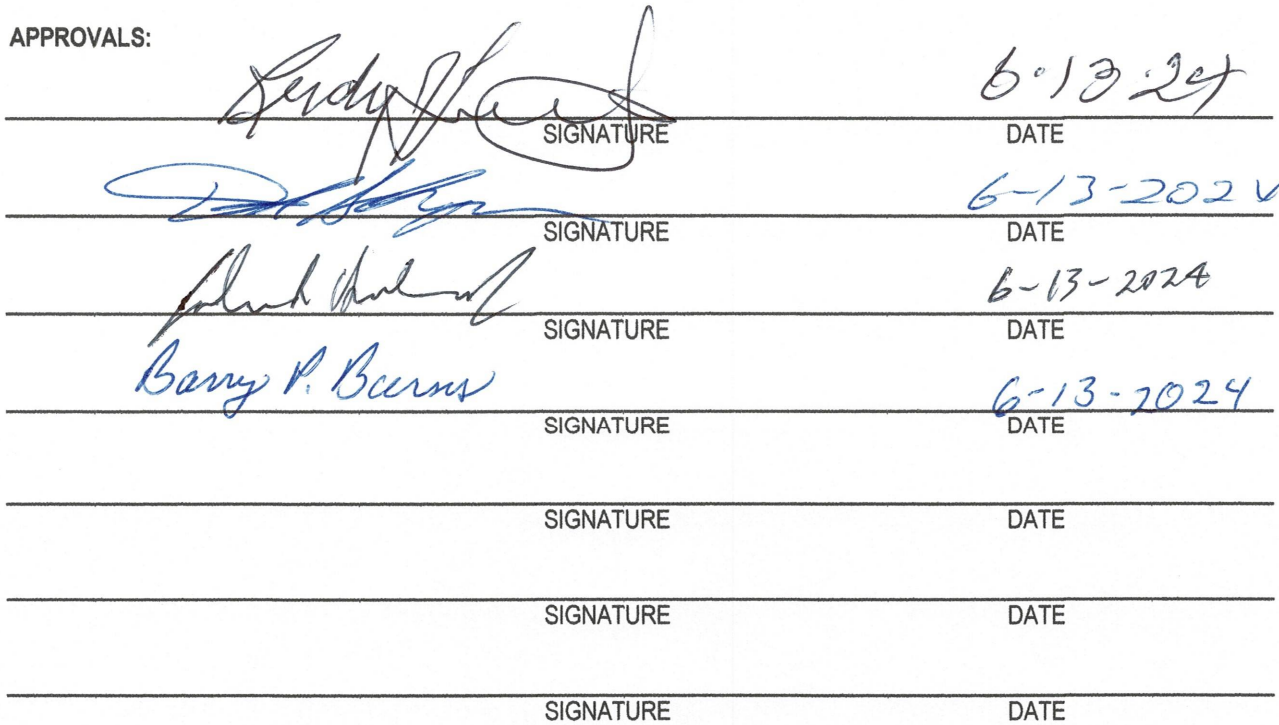 APPROVALS:
6·13·24
SIGNATURE DATE
6-13-2024
SIGNATURE DATE
6-13-2024
SIGNATURE DATE
Barry P. Burns 6-13-2024
SIGNATURE DATE
SIGNATURE DATE
SIGNATURE DATE
SIGNATURE DATE